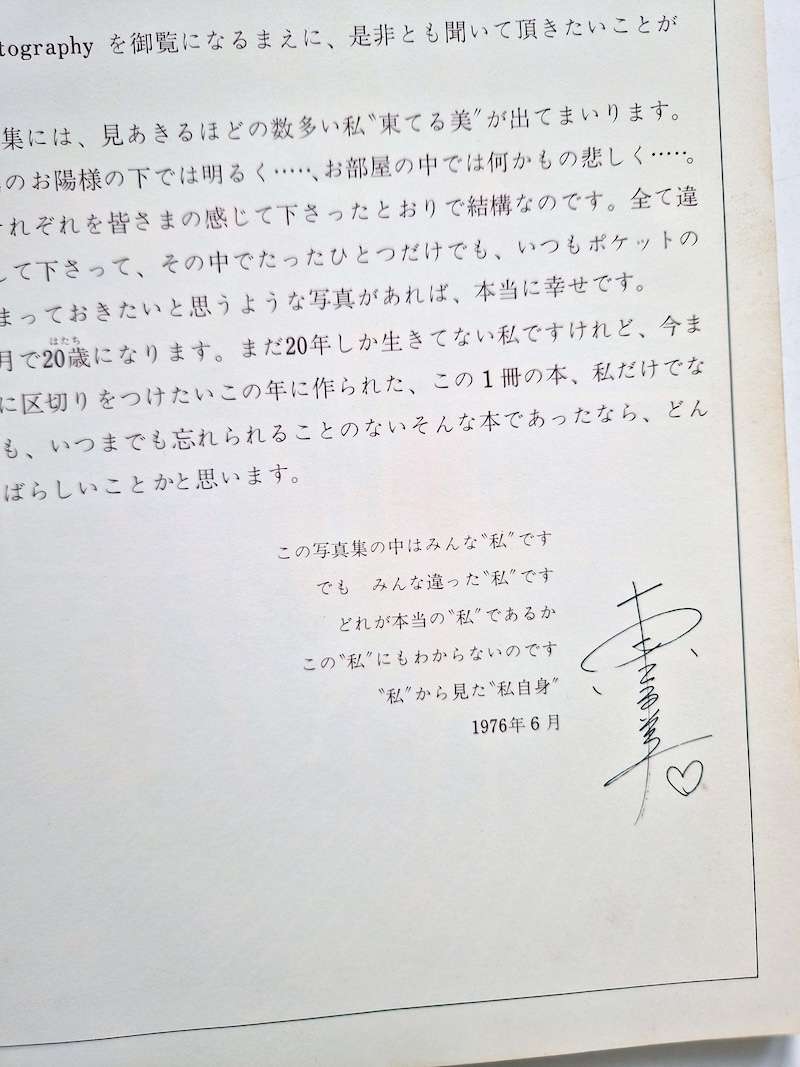 tography を御覧になるまえに、是非とも聞いて頂きたいことが
集には、見あきるほどの数多い私〝東てる美〟が出てまいります。
のお陽様の下では明るく……、お部屋の中では何かもの悲しく……。
れぞれを皆さまの感じて下さったとおりで結構なのです。全て違
して下さって、その中でたったひとつだけでも、いつもポケットの
まっておきたいと思うような写真があれば、本当に幸せです。
月で20歳になります。まだ20年しか生きてない私ですけれど、今ま
はたち
に区切りをつけたいこの年に作られた、この1冊の本、私だけでな
も、いつまでも忘れられることのないそんな本であったなら、どん
ばらしいことかと思います。
この写真集の中はみんな〝私〟です
でも　みんな違った〝私〟です
どれが本当の〝私〟であるか
この〝私〟にもわからないのです
〝私〟から見た〝私自身〟
1976年6月